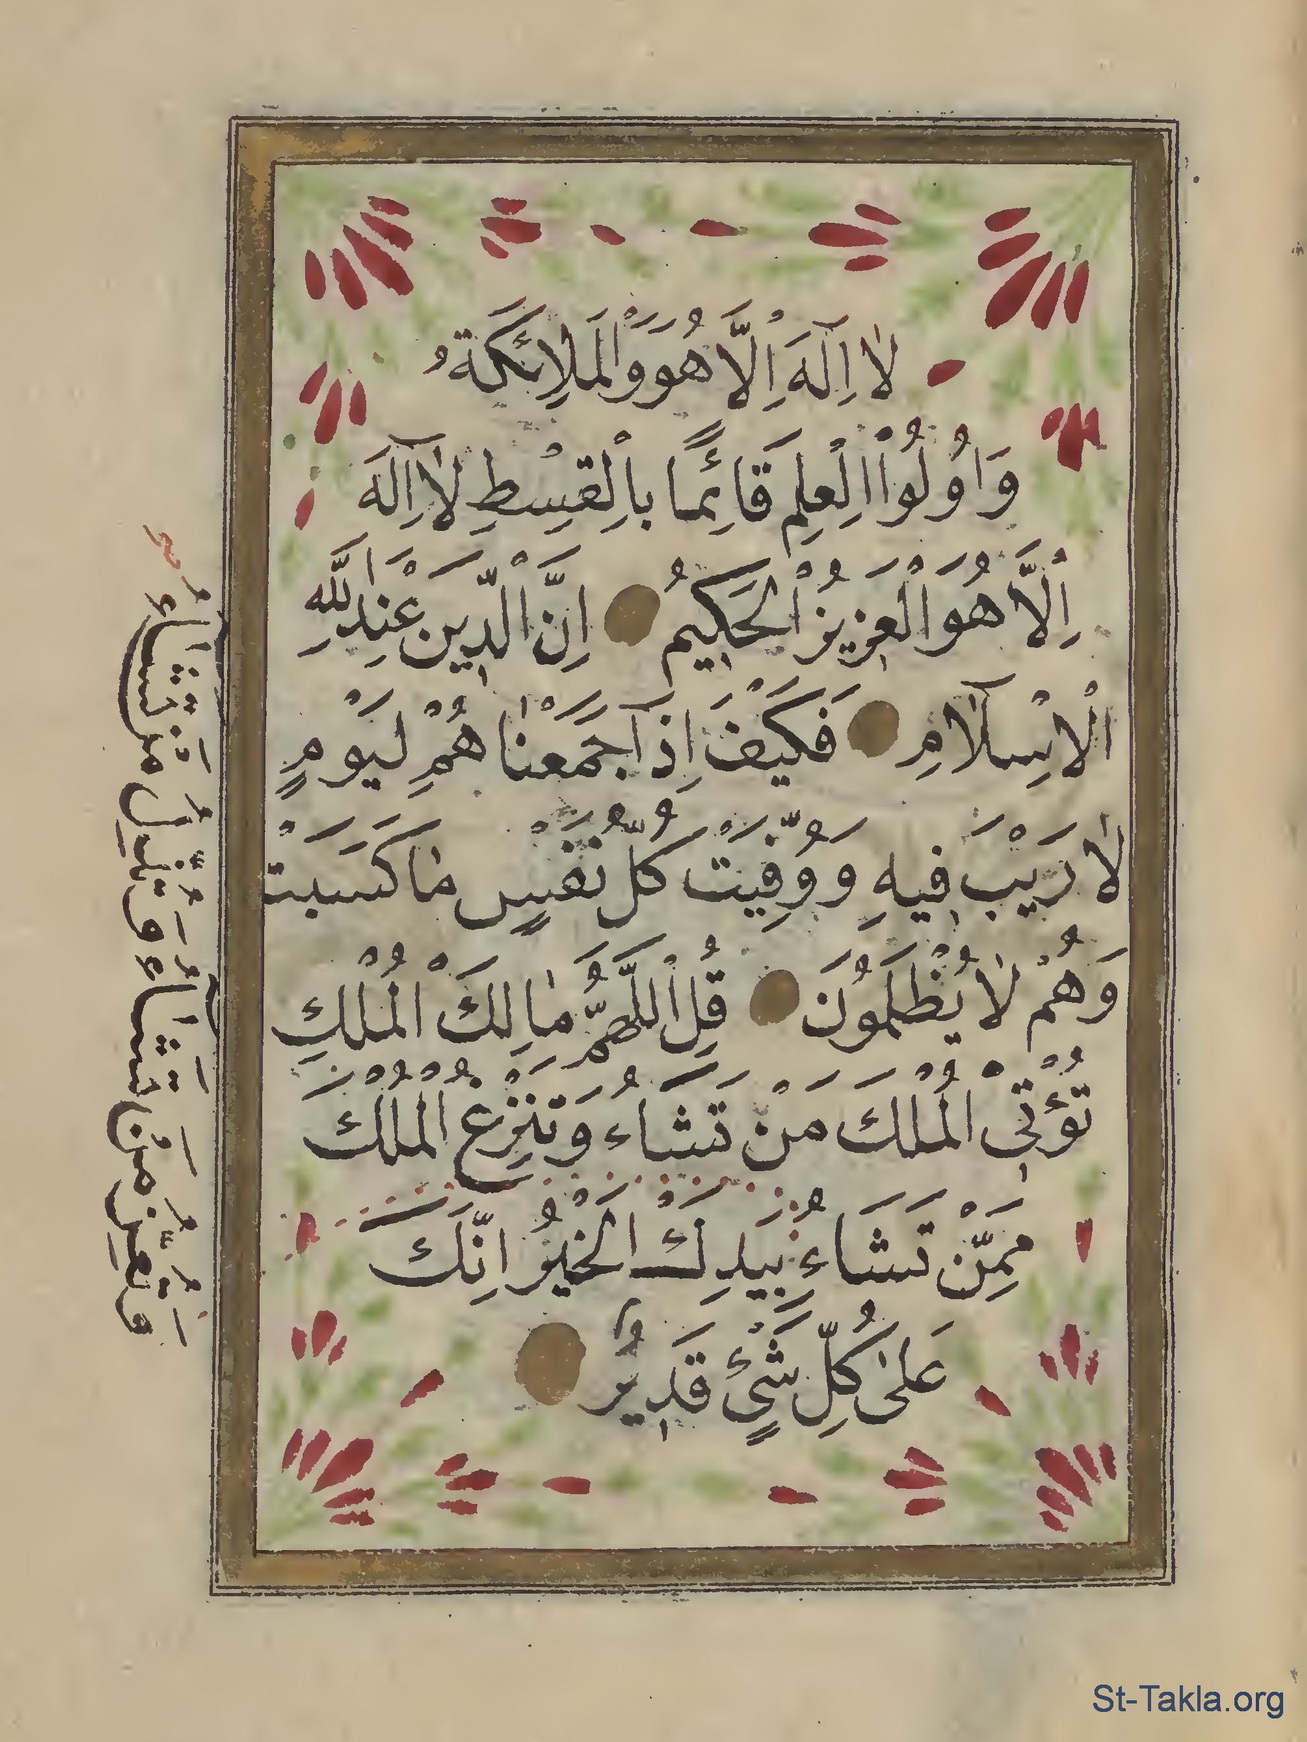 لَا اِلٰهَ اِلَّا هُوَ وَالْمَلٰئِكَةُ
وَاُولُوا الْعِلْمِ قَائِمًا بِالْقِسْطِ لَا اِلٰهَ
اِلَّا هُوَ الْعَزِيزُ الْحَكِيمُ اِنَّ الدِّينَ عِنْدَ اللّٰهِ
الْاِسْلَامِ فَكَيْفَ اِذَا جَمَعْنَا هُمْ لِيَوْمٍ
لَا رَيْبَ فِيهِ وَ وُفِّيَتْ كُلُّ نَفْسٍ مَا كَسَبَتْ
وَهُمْ لَا يُظْلَمُونَ قُلِ اللّٰهُمَّ مَالِكَ الْمُلْكِ
تُؤْتِى الْمُلْكَ مَنْ تَشَاءُ وَتَنْزِعُ الْمُلْكَ
مِمَّنْ تَشَاءُ بِيَدِكَ الْخَيْرُ اِنَّكَ
عَلٰى كُلِّ شَىْءٍ قَدِيرٌ
وَتُعِزُّ مَنْ تَشَاءُ وَتُذِلُّ مَنْ تَشَاءُ
St-Takla.org